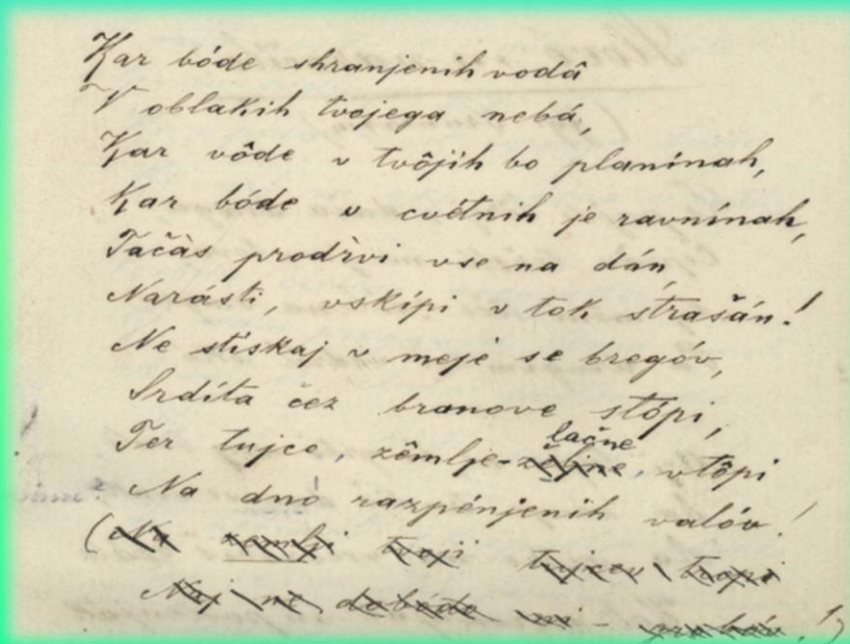 Kar bóde shranjenih vodâ
V oblakih tvojega nebá,
Kar vôde v tvôjih bo planínah,
Kar bóde v cvétnih je ravnínah,
Tačàs prodrvi vse na dán,
Narásti, vskípi v tok strašán!
Ne stískaj v mejé se bregóv,
Srdíta čez branove stópi,
lačne
Ter tujce, zêmlje-željne, vtôpi
Na dno razpénjenih valóv!
(Na zemlji tvoji tujcev tropi
Naj ne dobodo